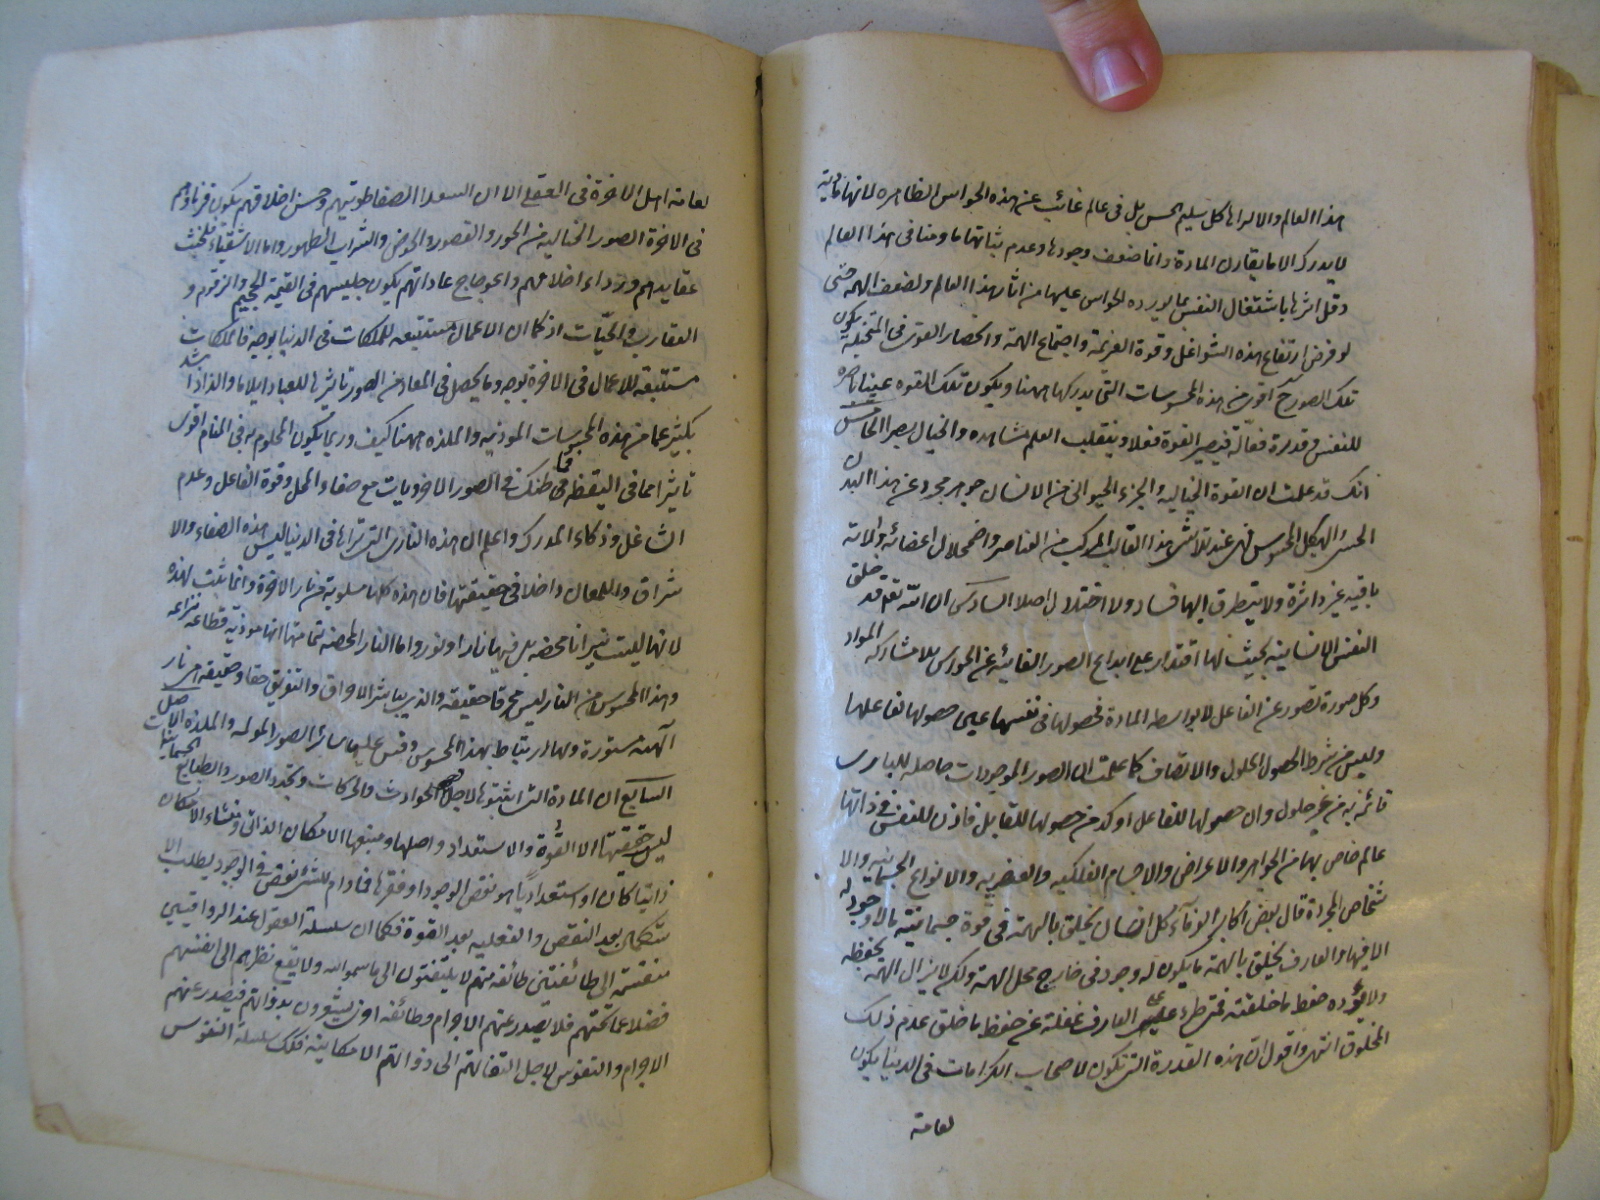 هذا العالم والا لراها كل سليم الحس بل فى عالم غائب عن هذه الحواس الظاهره لانها مادية
لا يدرك الا ما يقارن المادة وانما ضعف وجودها وعدم ثباتها ما دمنا فى هذا العالم
وقل اثرها باشتغال النفس بما يورده الحواس عليها من اثار هذا العالم ولضعف الهمه حتى
لو فرض ارتفاع هذه الشواغل وقوة العزيمة واجتماع الهمة وانحصار القوى فى المتخيلة يكون
تلك الصور ح اقوى من هذه المحسوسات التى يدركها ههنا ويكون تلك القوه عينا باصره
للنفس وقدرة فعالة فيصير القوة فعلا وينقلب العلم مشاهده والخيال بصرا الخامس
انك قد علمت ان القوة الخياليه والجزء الحيوانى من الانسان جوهر مجرد عن هذا البدن
الحسى والهيكل المحسوس فهى عند تلاشى هذا القالب المركب من العناصر واضمحلال اعضائه والاته
باقيه غير داثرة ولا يتطرق اليها فساد ولا اختلال اصلا السادس ان الله تعالى قد خلق
النفس الانسانية بحيث لها اقتدار على ابداع الصور الغائبه عن الحواس بلا مشاركه المواد
وكل صورة تصور عن الفاعل لا بواسطه المادة فحصولها فى نفسها عين حصولها لفاعلها
وليس من شرط الحصول الحلول والاتصاف كما علمت ان صور الموجودات حاصله للبارى
قائمه به من غير حلول وان حصولها للفاعل اوكد من حصولها للقابل فاذن للنفس فى ذاتها
عالم خاص بها من الجواهر والاعراض والاجسام الفلكيه والعنصريه والانواع الجسمانيه والا
شخاص المجردة قال بعض اكابر العرفاء كل انسان يخلق بالهمة فى قوة خياليته ما لا وجود له
الا فيها والعارف يخلق بالهمة ما يكون له وجود فى خارج محل الهمة ولكن لا يزال الهمة يحفظه
ولا يؤوده حفظ ما خلقته فمتى طرء على العارف غفلة عن حفظ ما خلق عدم ذلك
المخلوق انتهى واقول ان هذه القدرة التى تكون لاصحاب الكرامات فى الدنيا يكون
لعامة
لعامة اهل الاخرة فى العقبى الا ان السعداء لصفا طويتهم وحسن اخلاقهم يكون قرناؤهم
فى الاخرة الصور الخياليه من الحور والقصور والحوض والشراب الطهور واما الاشقياء فلخبث
عقايدهم ورداءه اخلاقهم واعوجاج عاداتهم يكون جليسهم فى القيمة الجحيم والزقوم و
العقارب والحيات اذ كما ان الاعمال مستتبعه للملكات فى الدنيا بوجه فالملكات
مستتبعة للاعمال فى الاخرة بوجه وما يحصل فى المعاد من الصور تاثيرها للعباد ايلاما والذاذا اشد
بكثير مما من هذه المحسوسات الموذيه والملذه ههنا كيف وربما يكون المحلوم به فى المنام اقوى
تاثيرا مما فى اليقظه فما ظنك فى الصور الاخرويات مع صفاء المحل وقوة الفاعل وعدم
الشاغل وذكاء المدرك واعلم ان هذه النار التى تراها فى الدنيا ليس هذه الصفاء والا
شراق واللمعان داخلا فى حقيقتها فان هذه كلها مسلوبة من نار الاخرة وانما ثبت لهذه
لانها ليست نيرانا محضه بل فيها نار او نور واما النار المحضه تمامتها انها موذية قطاعه نزاعه
وهذا المحسوس من النار ليس محرقا حقيقه والذى يباشر الاحراق والتفريق حقا وحقيقه هى نار
الهيه مستورة ولها ارتباط بهذا المحسوس وقس عليها سائر الصور المولمه والملذه الاصل
السابع ان المادة التى اثبتوها لاجل الحوادث والحركات وتجدد الصور والطبائع الجسمانيات
ليس حقيقتها الا القوة والاستعداد واصلها ومنبعها الامكان الذاتى ومنشاء الامكان
ذاتيا كان او استعداديا هو نقص الوجود او فقرها فمادام للشئ نقص فى الوجود يطلب الا
ستكمال بعد النقص والفعليه بعد القوة فكما ان سلسلة العقول عند الرواقيين
منقسمة الى طائفتين طائفه منهم لا يلتفتون الى ما سواه ولا يقع نظرهم الى انفسهم
فضلا عما تحتهم فلا يصدر عنهم الاجرام وطائفه اخرى يشعرون بذواتهم فيصدر عنهم
الاجرام والنفوس لاجل التفاتهم الى ذواتهم الامكانيه فكذلك سلسلة النفوس